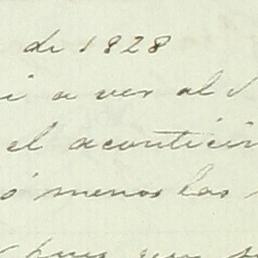 de 1828
i a ver al
el aconteci
ó menos las